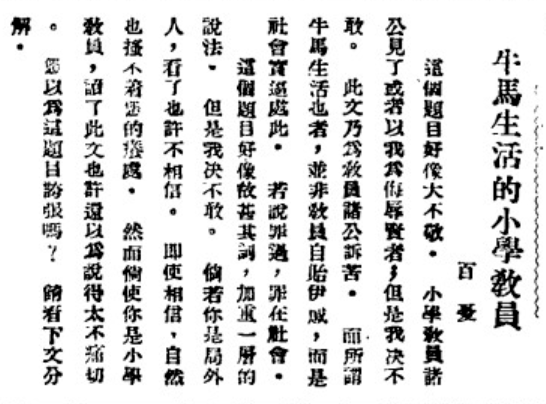 牛馬生活的小學敎員
百憂
這個題目好像大不敬。　小學敎員諸
公見了或者以我爲侮辱賢者，但是我决不
敢。　此文乃爲敎員諸公訴苦。　而所謂
牛馬生活也者，並非敎員自貽伊戚，而是
社會實逼處此。　若說罪過，罪在社會。
這個題目好像故甚其詞，加重一層的
說法。　但是我决不敢。　倘若你是局外
人，看了也許不相信。　卽使相信，自然
也搔不着您的癢處。　然而倘使你是小學
敎員，讀了此文也許還以爲說得太不痛切
。　您以爲這題目誇張嗎？　請看下文分
解。